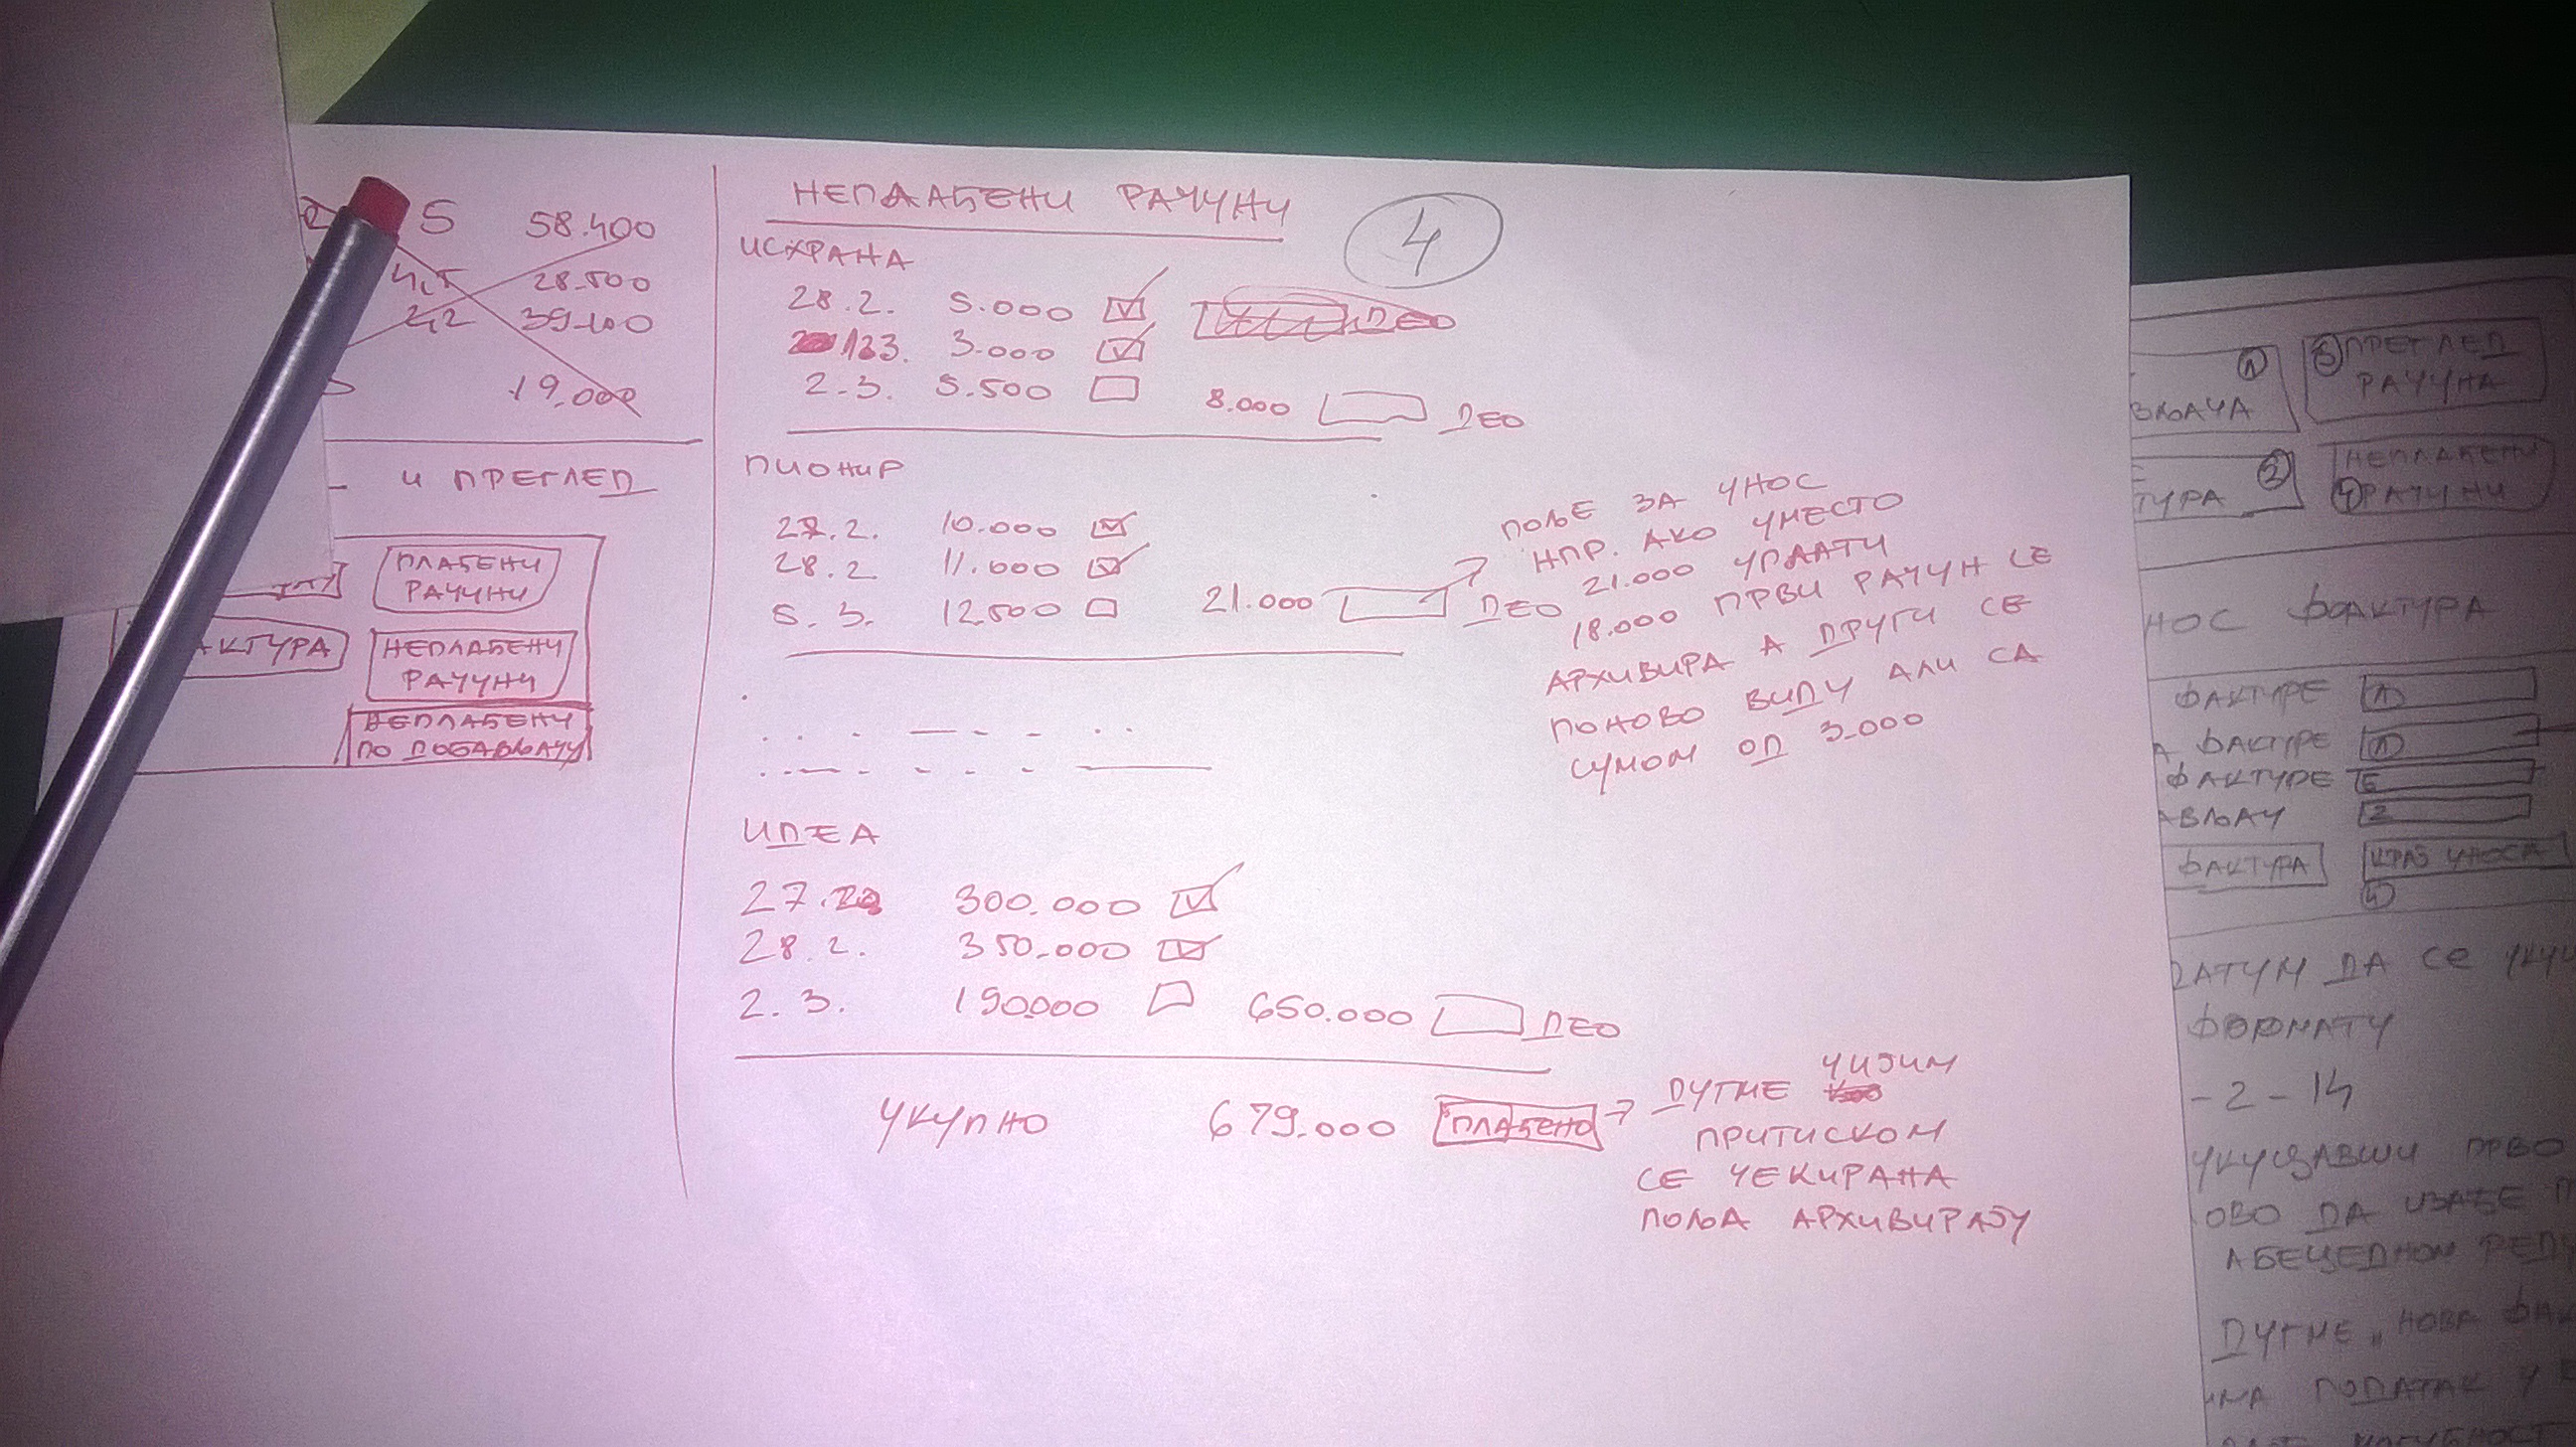 5 58.400
4,5 28.500
2,2 39.100
19.000
И ПРЕГЛЕД
ПЛАЋЕНИ
РАЧУНИ
АКТУРА
НЕПЛАЋЕНИ
РАЧУНИ
НЕПЛАЋЕНИ
ПО ДОБАВЉАЧУ
НЕПЛАЋЕНИ РАЧУНИ
4
ИСХРАНА
28.2. 5.000
3.000
2.3. 5.500 8.000 ДЕО
ПИОНИР
27.2. 10.000
28.2 11.000
5.3. 12.500 21.000 ДЕО
ПОЉЕ ЗА УНОС
НПР. АКО УМЕСТО
21.000 УПЛАТИ
18.000 ПРВИ РАЧУН СЕ
АРХИВИРА А ДРУГИ СЕ
ПОНОВО ВИДИ АЛИ СА
СУМОМ ОД 3.000
ИДЕА
27.2. 300.000
28.2. 350.000
2.3. 190000 650.000 ДЕО
УКУПНО 679.000 ПЛАЋЕНО
ДУГМЕ ЧИЈИМ
ПРИТИСКОМ
СЕ ЧЕКИРАНА
ПОЉА АРХИВИРАЈУ
1
ВЉАЧА
5 ПРЕГЛЕД
РАЧУНА
2
ТУРА
НЕПЛАЋЕНИ
4 РАЧУНИ
НОС ФАКТУРА
ФАКТУРЕ
А ФАКТУРЕ
ФАКТУРЕ
АВЉАЧ
ФАКТУРА
КРАЈ УНОСА
4
ДАТУМ ДА СЕ УКУЦ
ФОРМАТУ
-2-14
УКУЦАВШИ ПРВО
ОВО ДА ИЗАЂЕ П
АБЕЦЕДНОМ РЕД
ДУГМЕ „НОВА ФАК
ИМА ПОДАТАК У